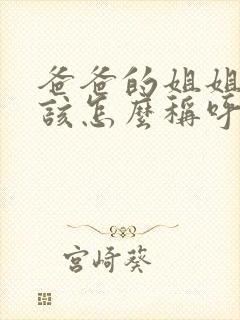 爸爸的姐姐
該怎麼稱呼
宮崎葵